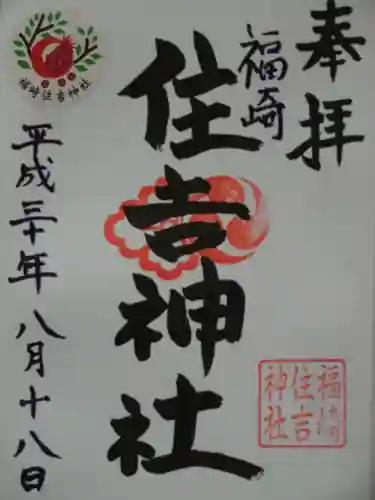 奉拝
福崎
住吉神社
平成三十年八月十八日
福崎住吉神社
福崎
住吉
神社